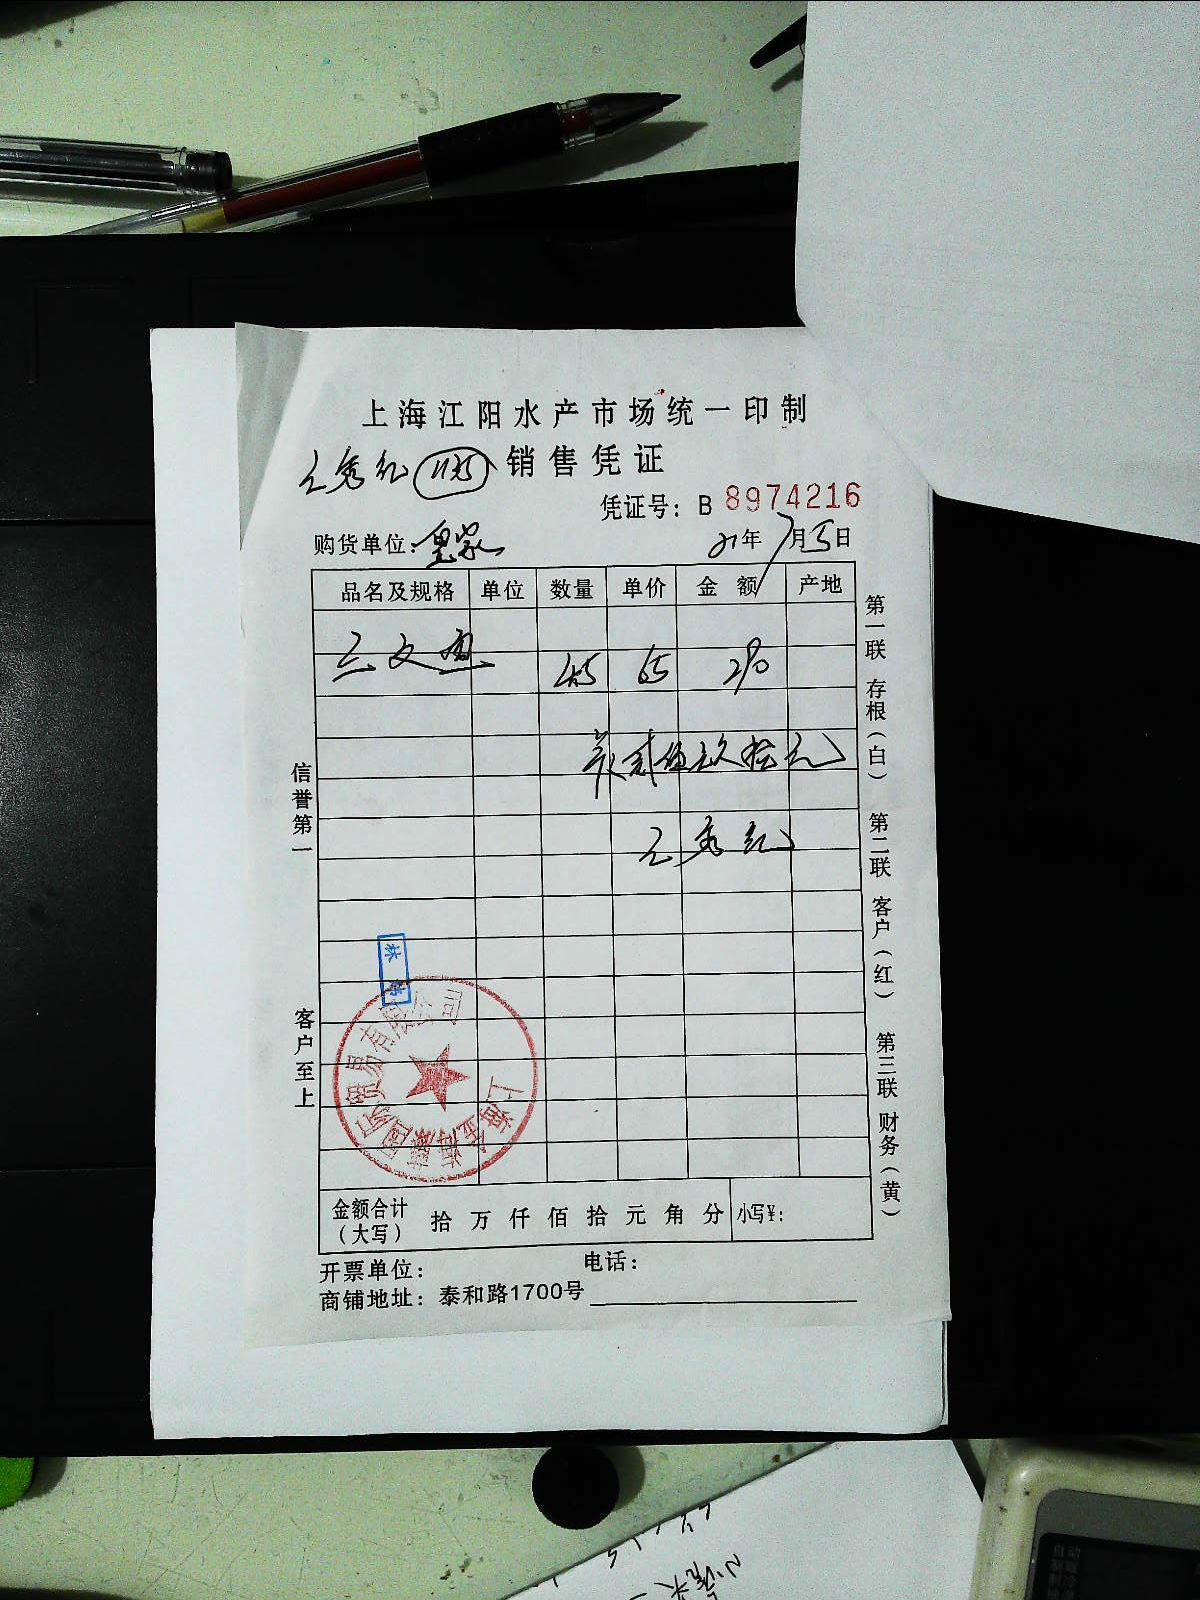 上海江阳水产市场统一印制
王秀红 1135 销售凭证
凭证号：B 8974216
购货单位：皇家
21年7月5日
品名及规格 单位 数量 单价 金额 产地
三文鱼 45 65 290
贰佰玖拾元
王秀红
信誉第一
客户至上
第一联 存根（白） 第二联 客户（红） 第三联 财务（黄）
林
国际贸易有限公司
金额合计（大写） 拾 万 仟 佰 拾 元 角 分 小写¥：
开票单位： 电话：
商铺地址：泰和路1700号